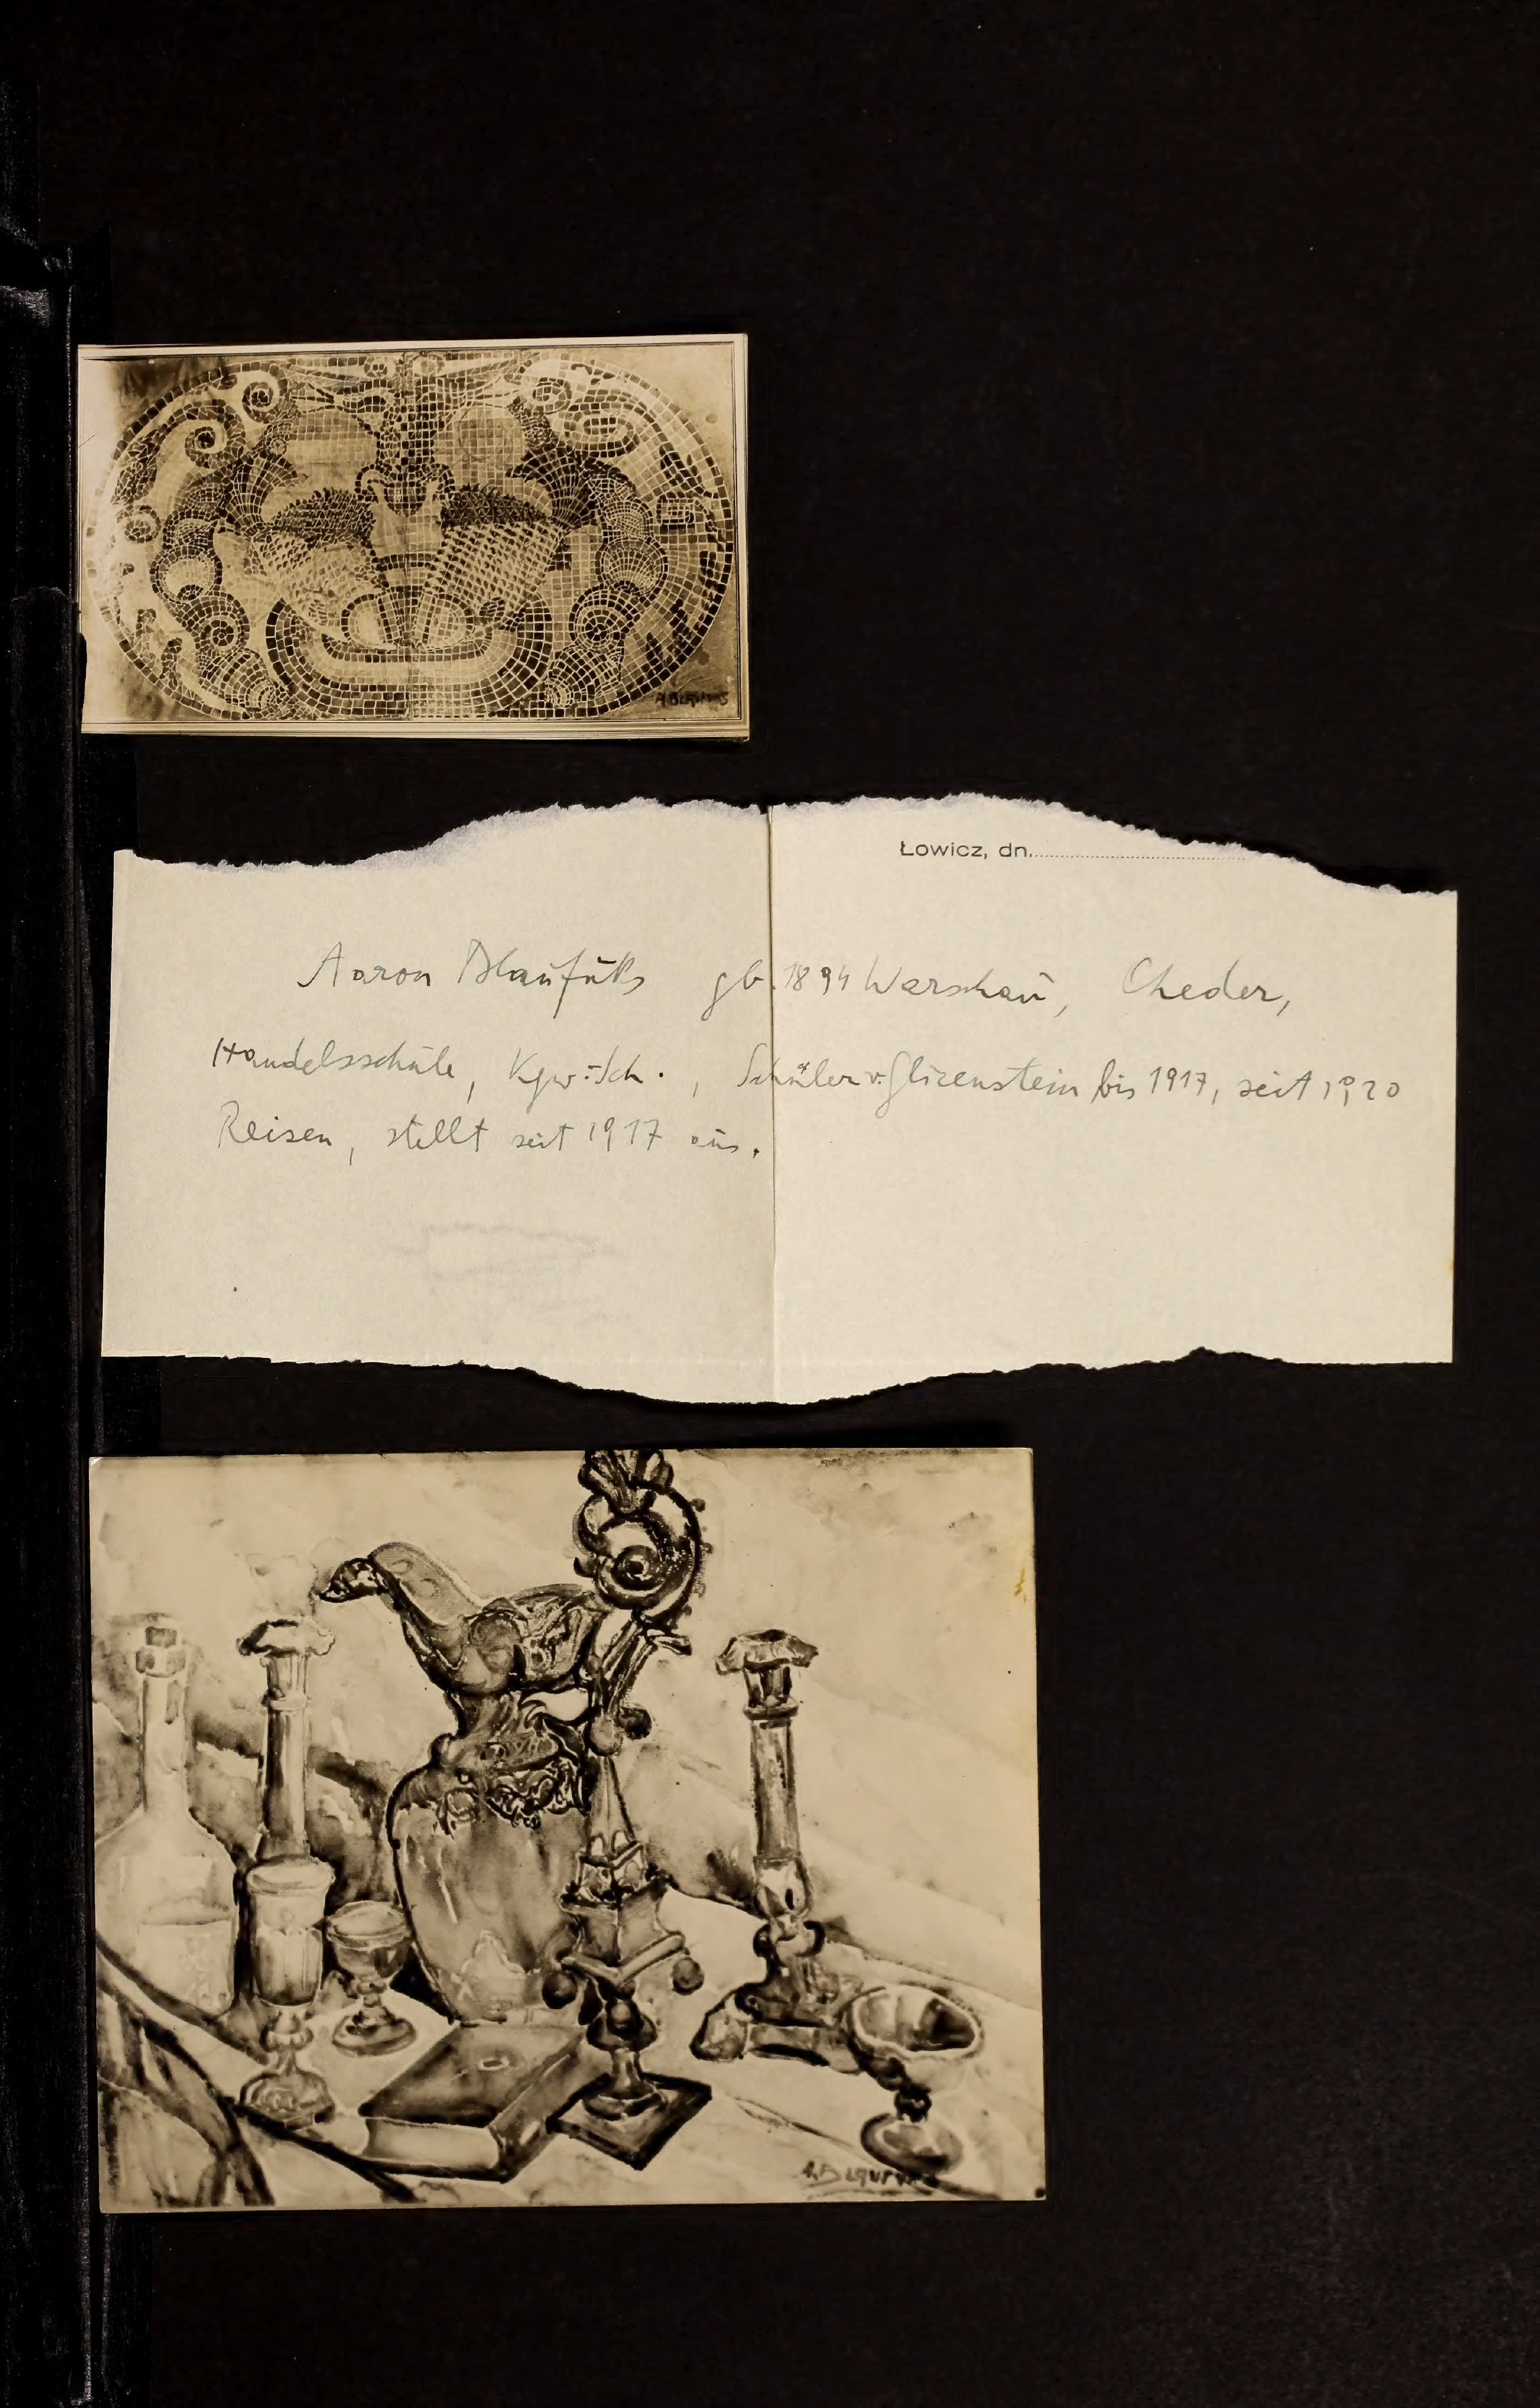 A. BLAUFUKS
Łowicz, dn.
Aaron Blaufuks gb. 1894 Warschau, Cheder,
Handelsschule, Kgw. Sch., Schüler v. Glicenstein bis 1917, seit 1920
Reisen, stellt seit 1917 aus.
A. BLAUFUKS